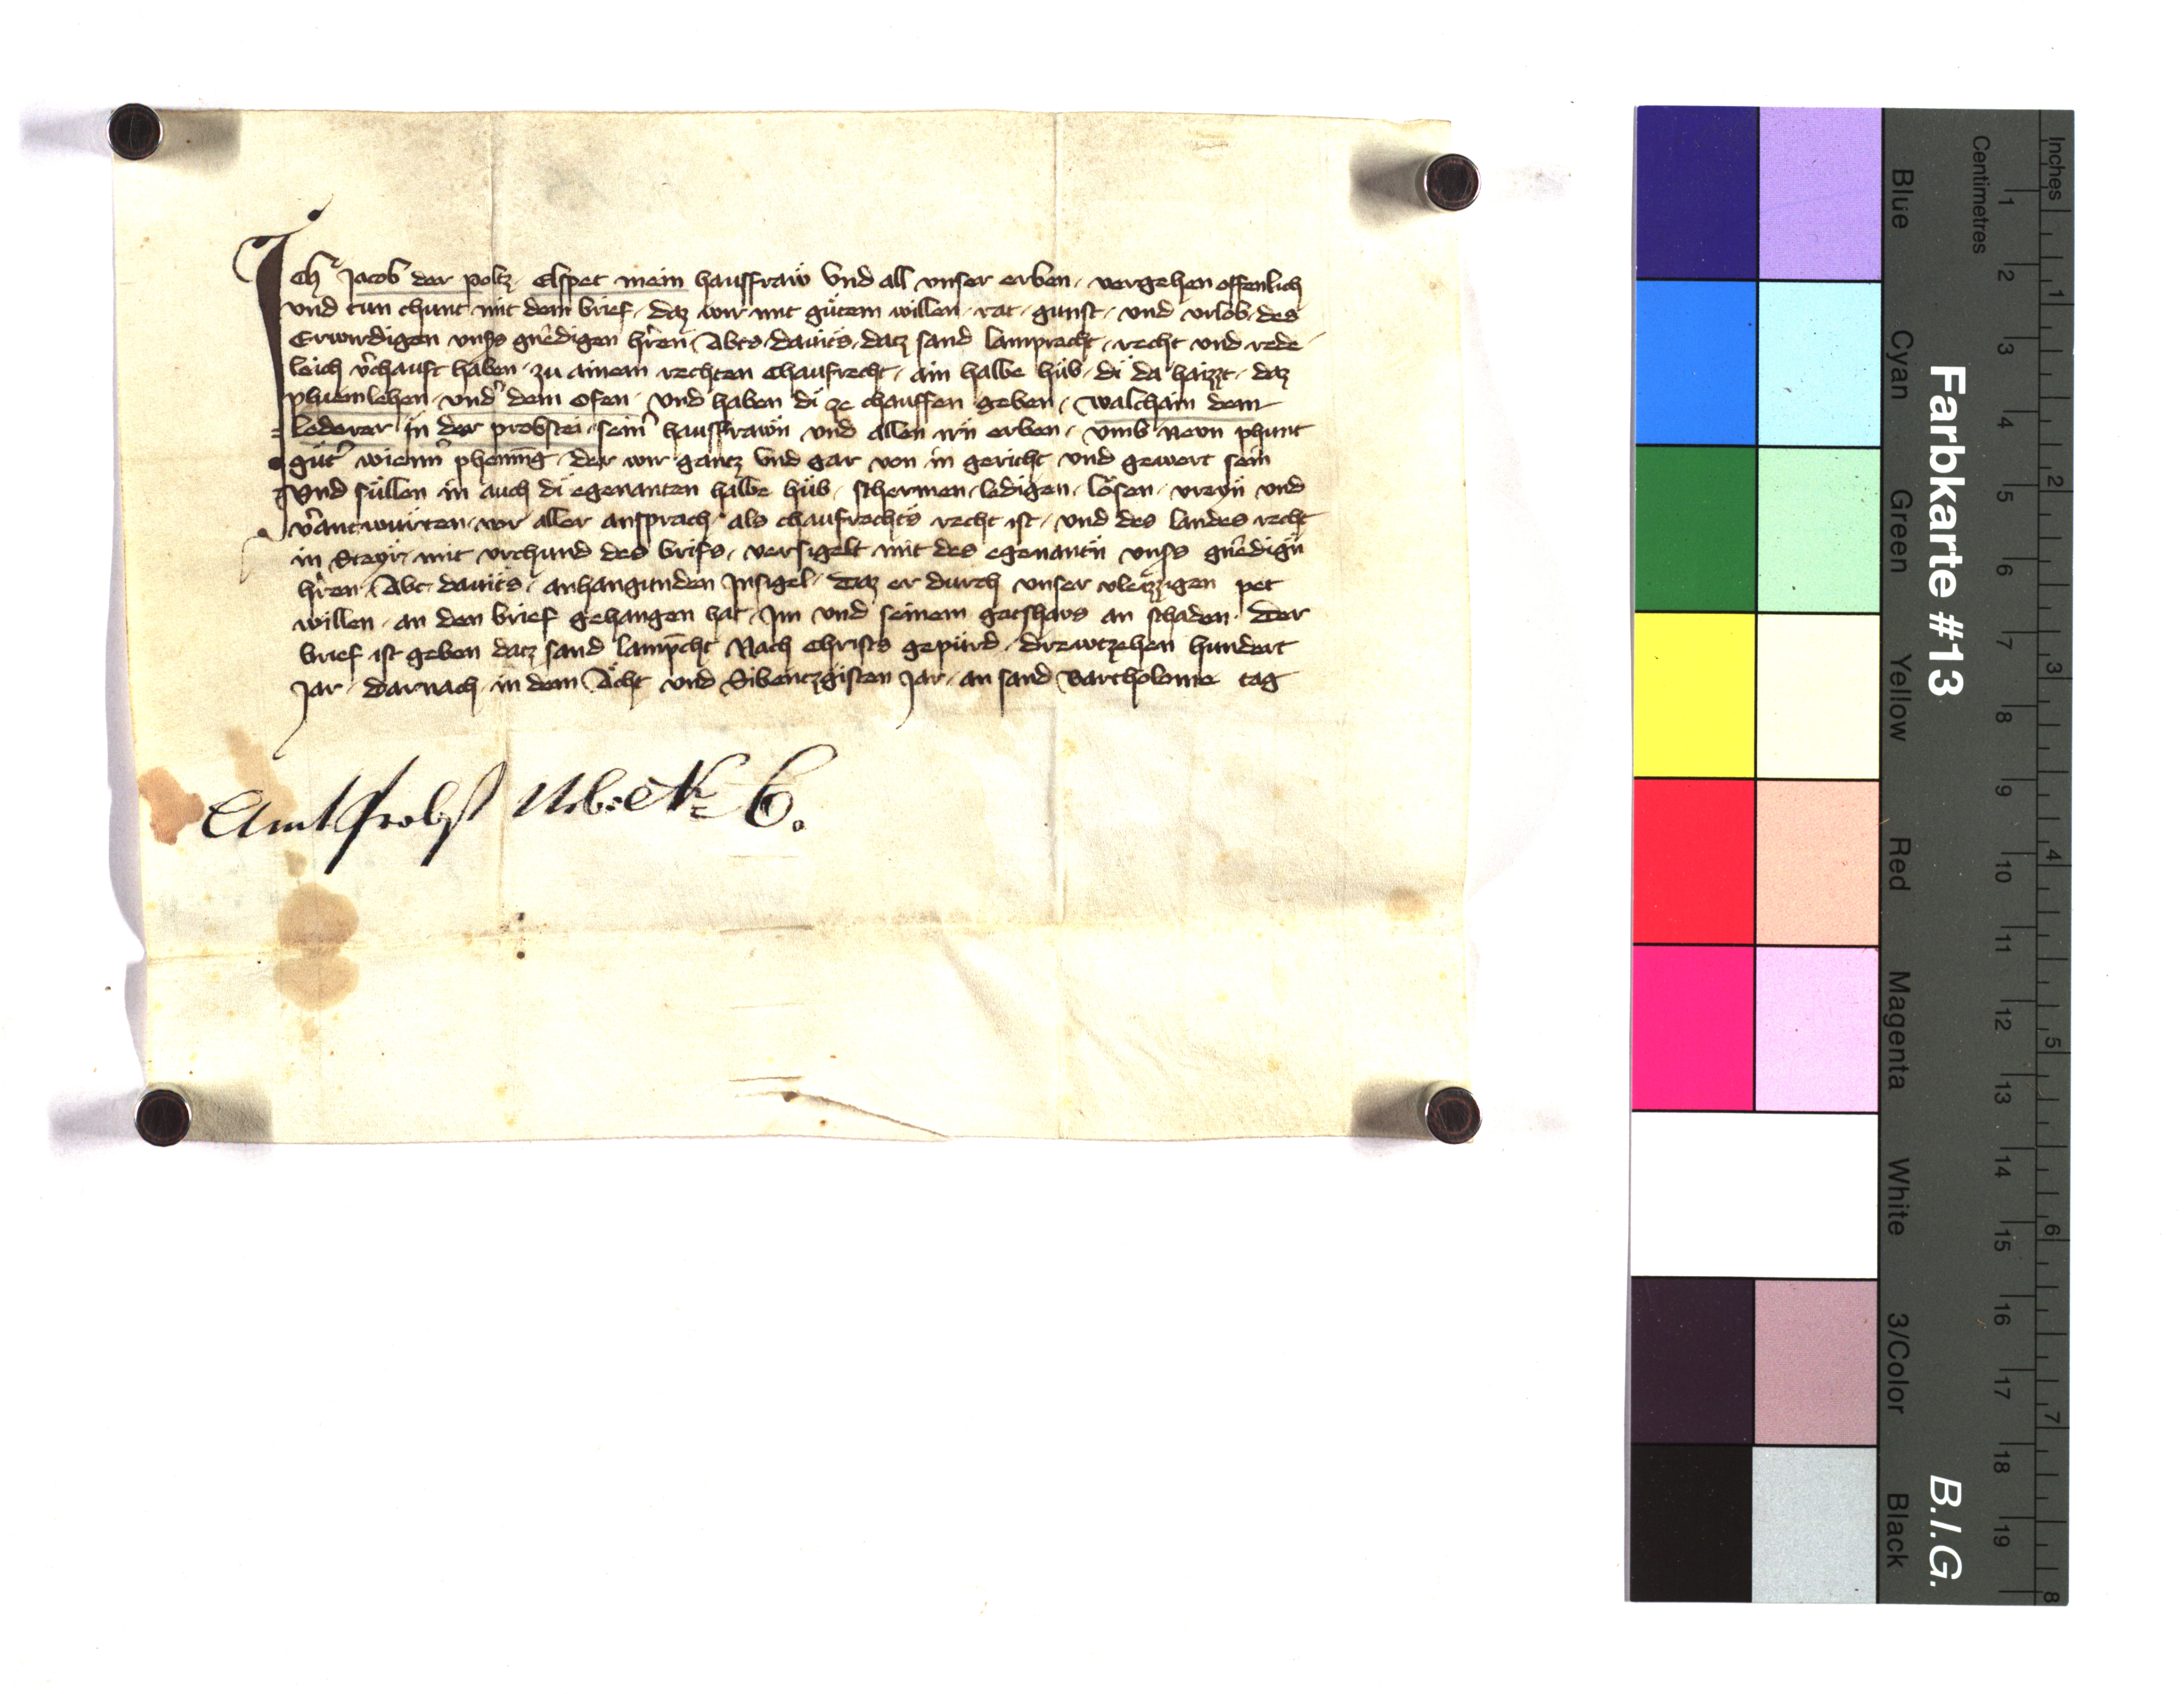 Ich Jacob der poltz, Elspet mein hausfraw Vnd all vnser erben, vergehen offenlich
vnd tun chunt mit dem brief, daz wir mit gůtem willen, rat, gunst, vnd vrlob, des
Erwirdigen vnss gnedigen hren, Abts dauits, datz sand lamprecht, recht vnd rede
leich vchauft haben, zu ainem rechten chaufrecht, ain halbe hůb, di da haizzt, daz
phuemlehen, vnd dem ofen, Vnd haben di ze chauffen geben, walchain dem
lederer in der probstei, sein hausfrawn vnd allen irn erben, vmb Nevn phunt
gůt wienn phening, der wir gantz Vnd gar von in gericht vnd gewert sein
Vnd sůllen in auch di egenanten halbe hůb, schermen, ledigen, lösen, vreyn vnd
vantwurten, vor aller ansprach, als chaufrechts recht ist, vnd des landes recht
in Steyr, mit vrchund des brifs, versigelt mit des egenantn vnss gnedign
hren, Abt dauits, anhangunden Insigel, Daz er durch vnser vleizzigen pet
willen, an den brief gehangen hat, Im vnd seinem gotshavs an schaden. Der
brief ist geben datz sand lampcht Nach Christs gepůrd, drewtzehen hundert
Jar, darnach, in dem Acht vnd Sibentzgisten Jar, an sand Bartholome tag
Amt Probst Urb: et N= 6.
Inches
Centimetres
1 2 3 4 5 6 7 8 9 10 11 12 13 14 15 16 17 18 19
1 2 3 4 5 6 7 8
Farbkarte #13
B.I.G.
Blue
Cyan
Green
Yellow
Red
Magenta
White
3/Color
Black